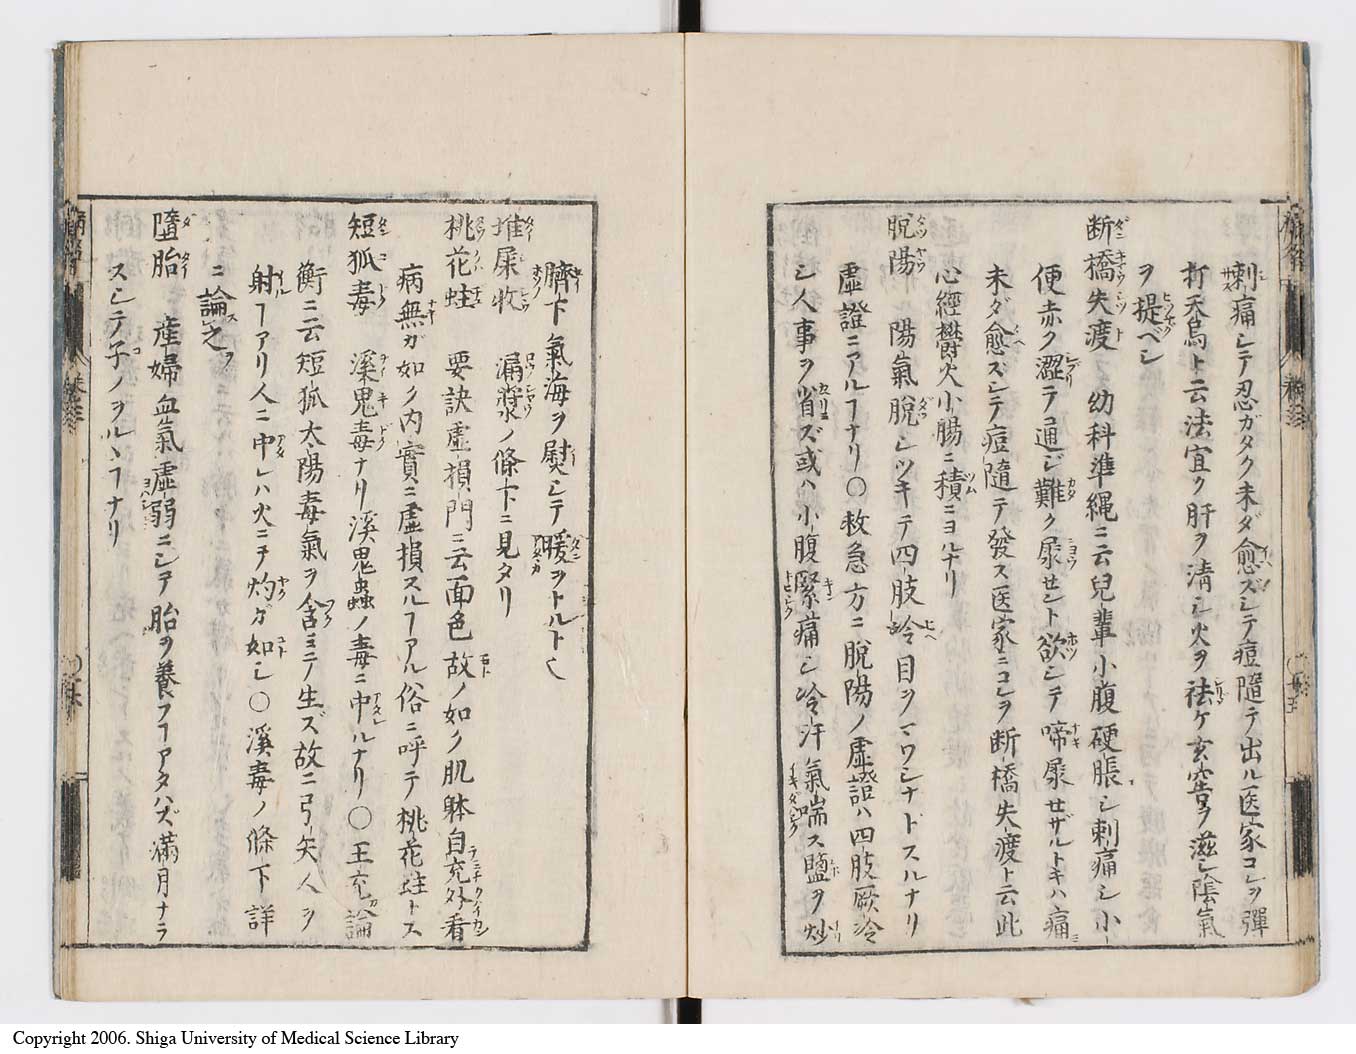 刺痛シテ忍ガタク未ダ愈ズシテ痘隨テ出ル医家コレヲ彈
打天烏ト云法宜ク肝ヲ淸シ火ヲ祛ケ玄宮ヲ滋シ陰氣
ヲ提ベシ
断橋失渡 幼科準縄ニ云兒輩小腹硬脹シ刺痛シ小
便赤ク澀テ通ジ難ク尿セント欲シテ啼尿セザルトキハ痛
未ダ愈ズシテ痘隨テ發ス医家ニコレヲ断橋失渡ト云此
心經欝火小腸ニ積ニヨルナリ
脱陽 陽氣脱シツキテ四肢冷目ヲマワシナドスルナリ
虚證ニアルヿナリ〇救急方ニ脱陽ノ虚證ハ四肢厥冷
シ人事ヲ省ズ或ハ小腹緊痛シ冷汗氣喘ス鹽ヲ炒
臍下氣海ヲ熨シテ暖ヲトルト〱
堆屎收 漏㽲ノ條下ニ見タリ
桃花蛀 要訣虚損門ニ云面色故ノ如ク肌躰自充外看
病無ガ如ク内實ニ虚損スルヿアル俗ニ呼テ桃花蛀トス
短狐毒 溪鬼毒ナリ溪鬼蟲ノ毒ニ中ルナリ〇王充論
衡ニ云短狐太陽毒氣ヲ含ミテノ生ズ故ニ弓矢人ヲ
射ヿアリ人ニ中レハ火ニテ灼ガ如シ〇溪毒ノ條下詳
ニ論之
墮胎 産婦血氣虚弱ニシテ胎ヲ養フヿアタハズ滿月ナラ
ズシテ子ノヲルヽヿナリ
Copyright 2006. Shiga University of Medical Science Library